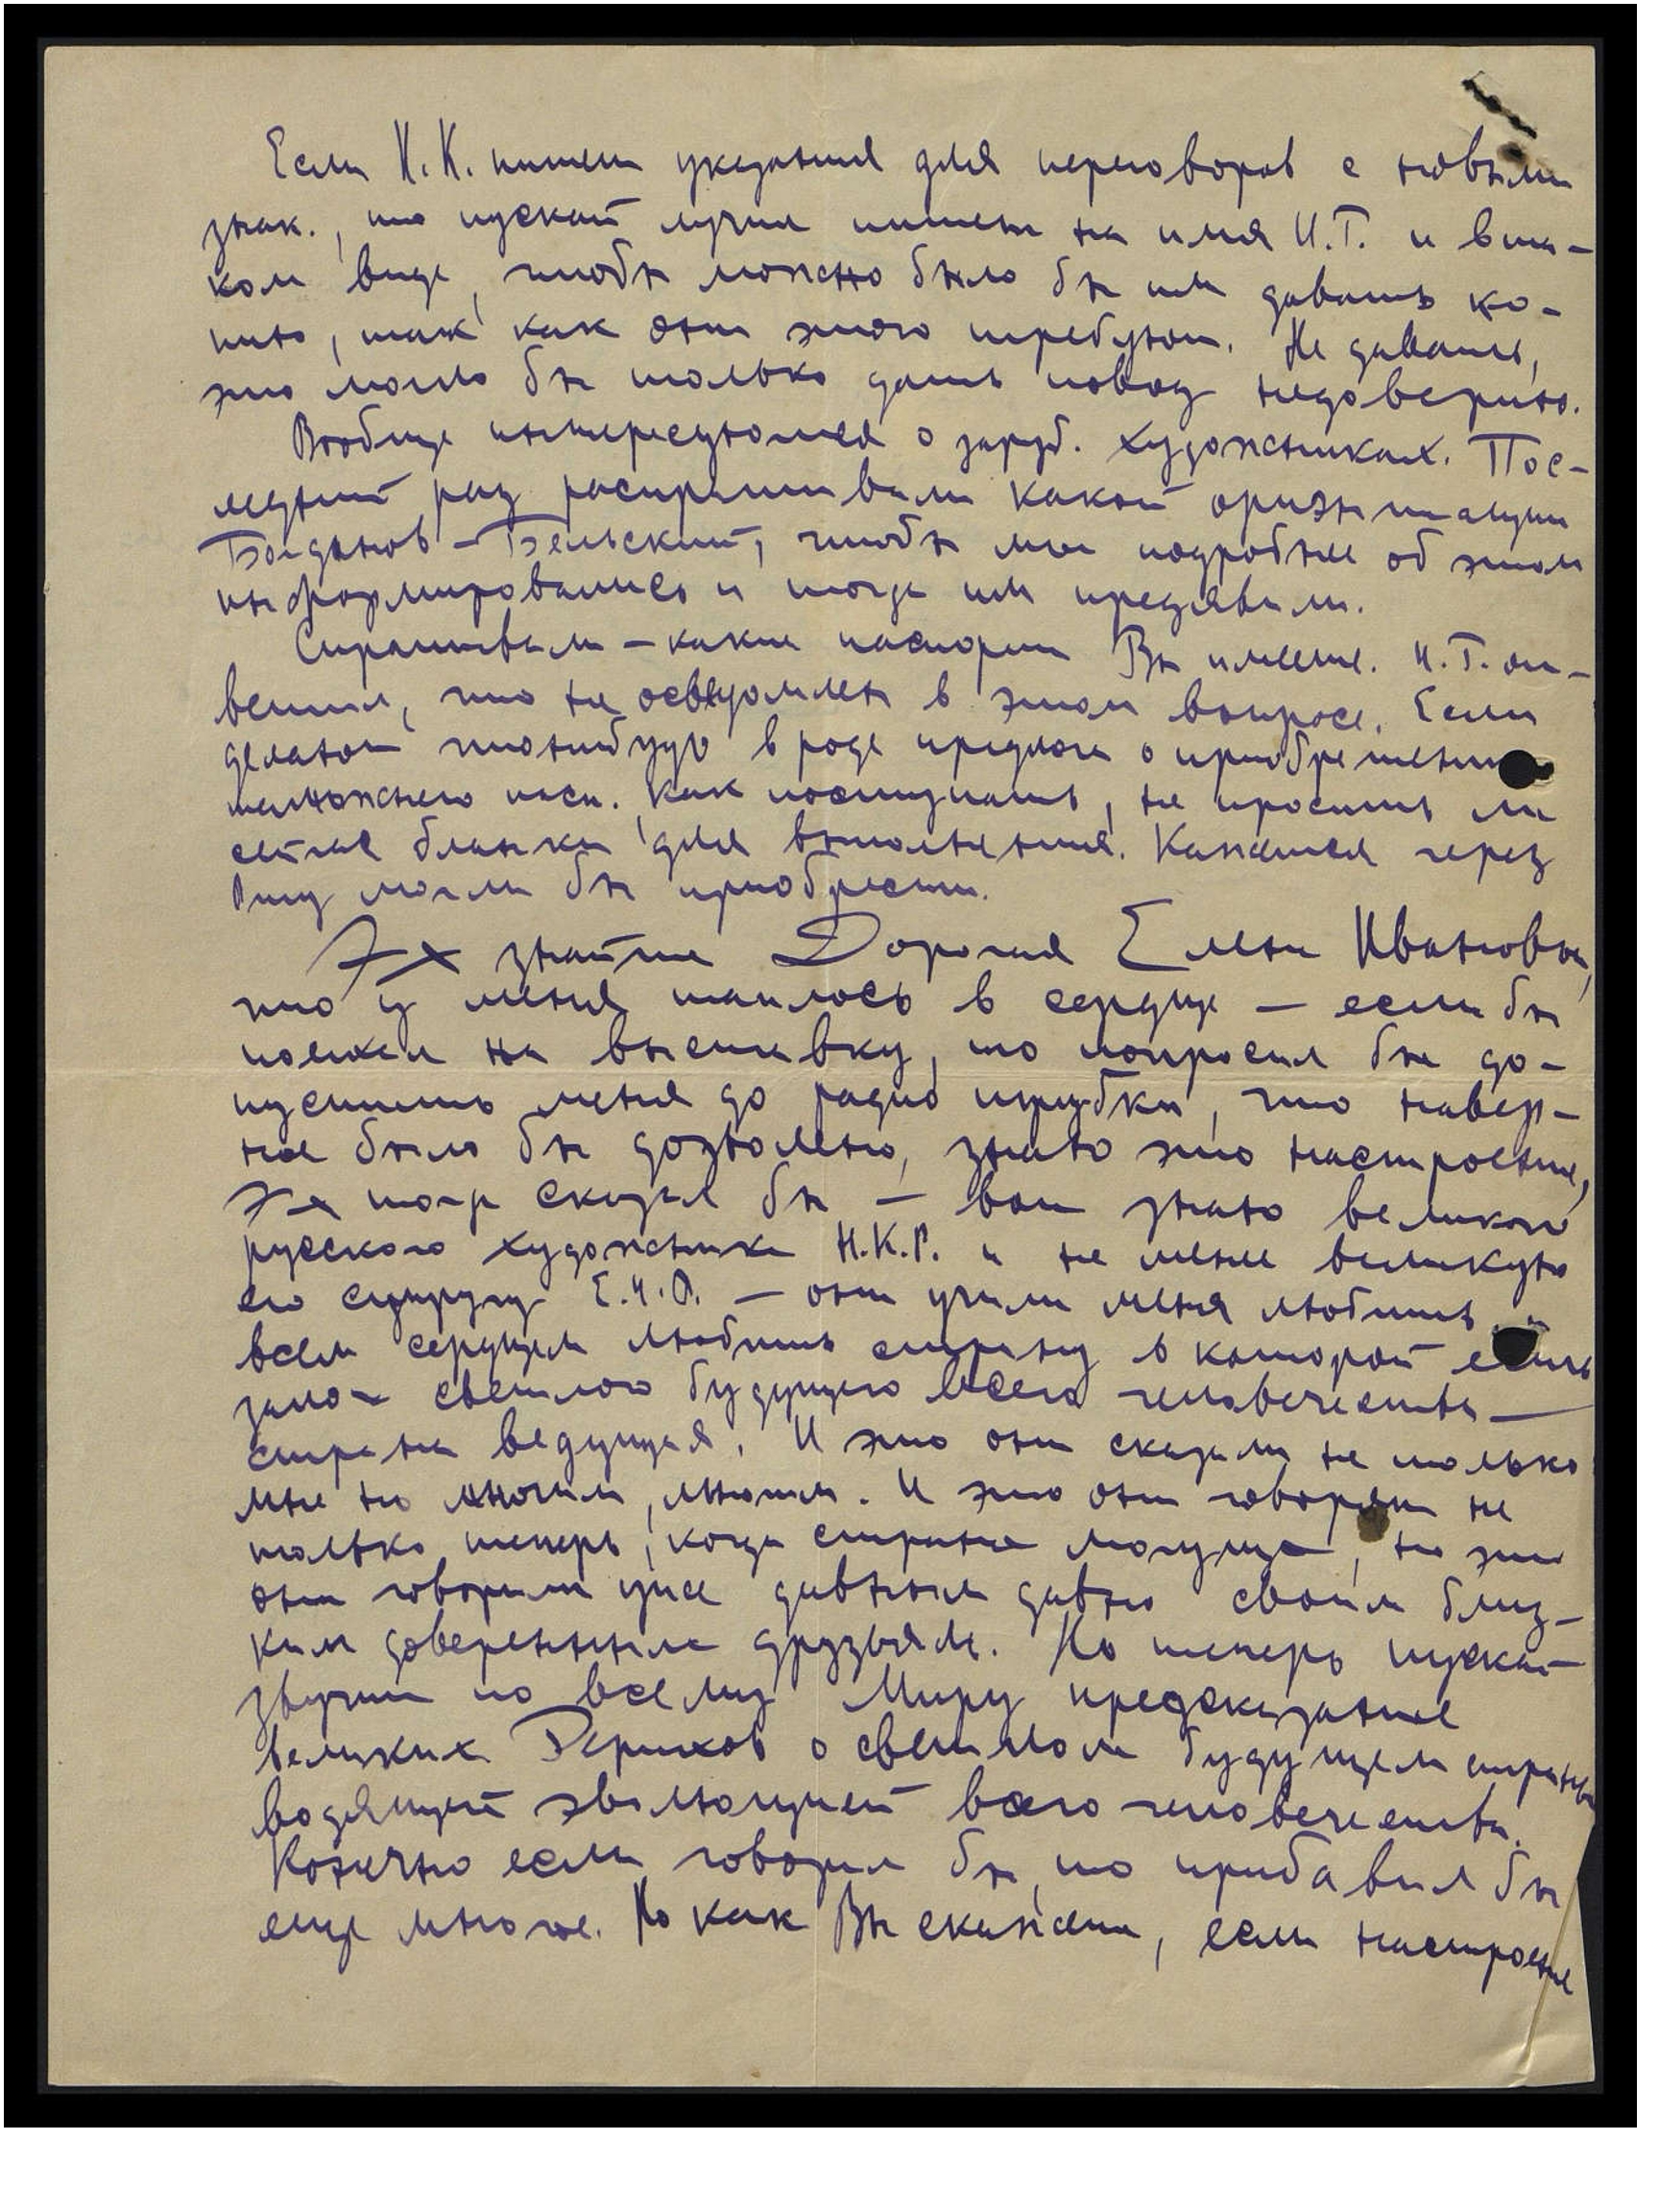 Если Н.К. пишет указания для переговоров с новыми
знак., то пускай лучше пишет на имя И.Г. и в та-
ком виде, чтобы можно было бы им давать ко-
пию, так как они этого требуют. Не давать,
это могло бы только дать повод недоверию.
Вообще интересуются о заруб. художниках. Пос-
ледний раз распрашивали какой ориэнтации
Богданов-Бельский, чтобы мы подробнее об этом
информировались и тогда им предявили.
Спрашивали – какие паспорта Вы имеете. И.Г. от-
ветил, что не осведомлен в этом вопросе. Если
делают чтонибудь вроде предлога о приобретении
таможнего пасп. как поступать, не просить ли
сейчас бланки для выполнения. Кажется через
Ригу могли бы приобрести.
Эх знайте Дорогая Елена Ивановна,
что у меня таилось в сердце – если бы
поехал на выставку, то попросил бы до-
пустить меня до радио трубки, что навер-
ное было бы дозволено, знаю это настроение,
Эх тогда сказал бы – вот знаю великого
русского художника Н.К.Р. и не менее великую
его супругу Е.И.Р. – они учили меня любить
всем сердцем любить страну в которой есть
залог светлого будущего всего человечества –
страна ведущая. И это они сказали не только
мне но многим, многим. И это они говорят не
только теперь, когда страна могуща, но это
они говорили уже давным давно своим близ-
ким доверенным друзьям. Но теперь пускай
звучит по всему Миру предсказание
великих Рерихов о светлом будущем страны
водящей эволюцией всего человечества.
Конечно если говорил бы, то прибавил бы
еще многое. Но как Вы скажете, если настроение